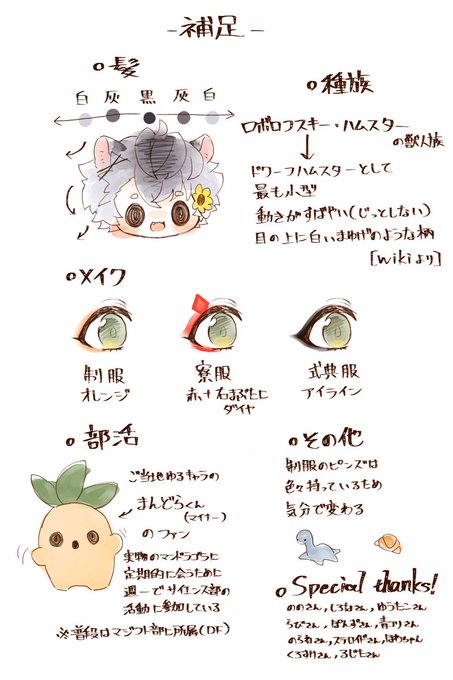 -補足-
○髪
白 灰 黒 灰 白
○種族
ロボロフスキー・ハムスター
の獣人族
ドワーフハムスターとして
最も小型
動きがすばやい(じっとしない)
目の上に白いまゆげのような柄
[wikiより]
○メイク
制服
オレンジ
寮服
赤、+右まぶたに
ダイヤ
式典服
アイライン
○部活
ご当地ゆるキャラの
まんどらくん
(マイナー)
のファン
実物のマンドラゴラに
定期的に会うために
週一でサイエンス部の
活動に参加している
※普段はマジフト部に所属(DF)
○その他
制服のピンズは
色々持っているため
気分で変わる
○Special thanks!
ののさん、しるねさん、ゆうたこさん
ろびさん、ぱんずさん、青ゴリさん
のろねさん、ステロイドさん、はわちゃん
くろすけさん、ふじたさん